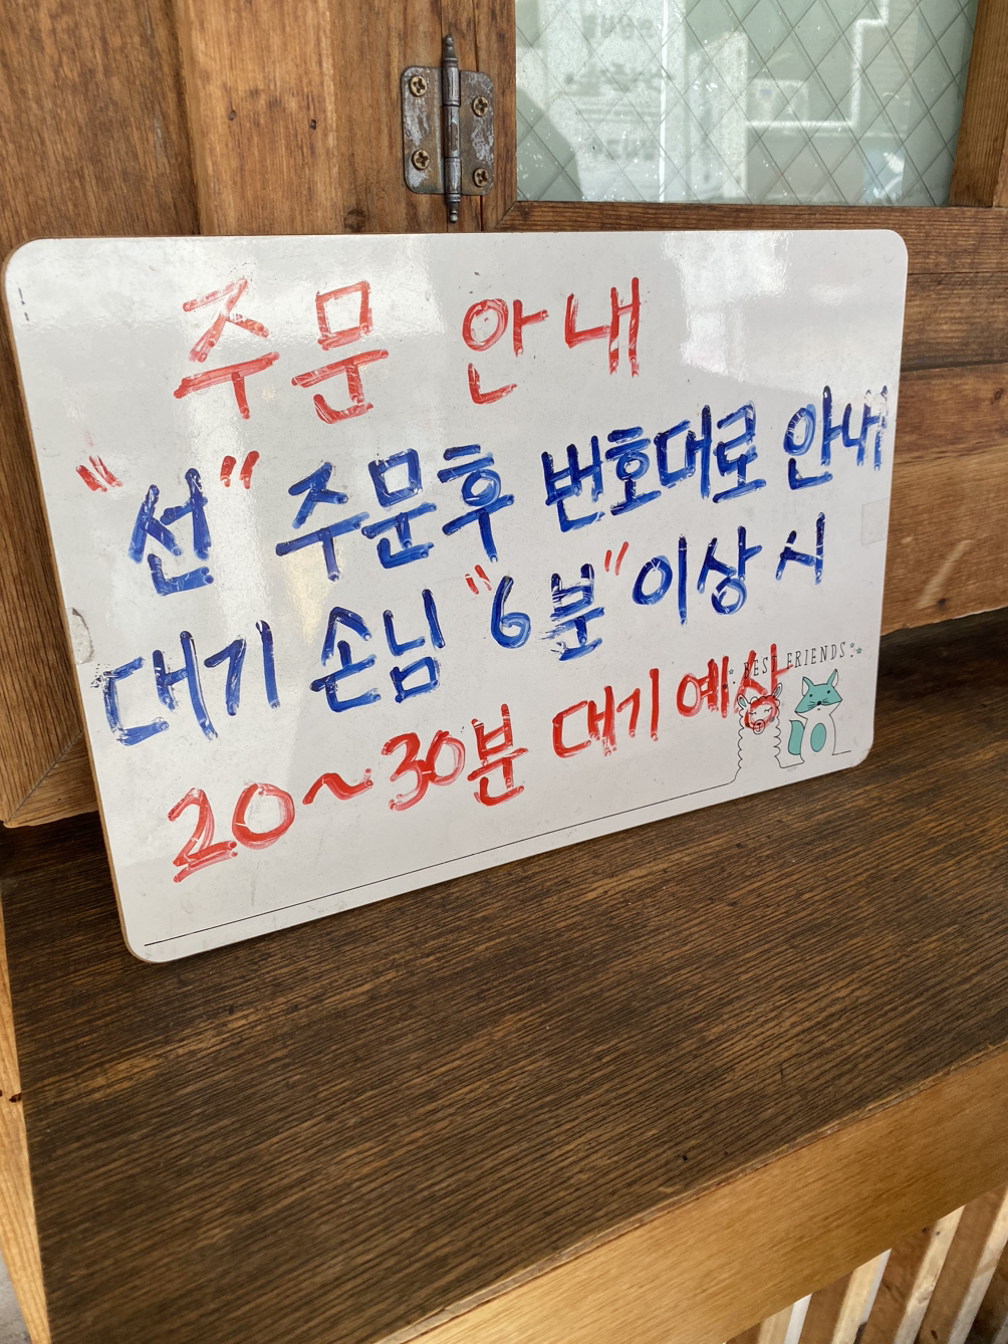 주문 안내
"선" 주문후 번호대로 안내
대기 손님 "6분" 이상 시
20~30분 대기 예상
BEST FRIENDS